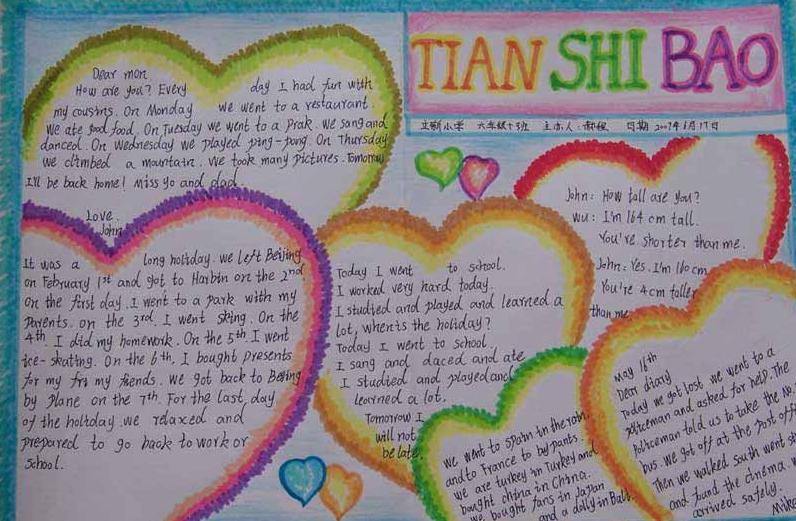 TIAN SHI BAO
文新小学 六年级十班 主办人: 日期 2007年6月17日
Dear mon
How are you? Every day I had fun with
my cousins. On Monday we went to a restaurant.
We ate good food. On Tuesday we went to a Prak. We sang and
danced. On Wednesday we played ping-pong. On Thursday
we climbed a mountain. We took many pictures. Tomorrow
I'll be back home! Miss yo and dad.
Love.
John
It was a long holiday. we left Beijing
on February 1st and got to Harbin on the 2nd
on the first day. I went to a park with my
Parents. on the 3rd. I went sking. On the
4th I did my homework. On the 5th I went
ice-skating. On the 6th, I bought presents
for my fri my fiends. we got back to Beijing
by Plane on the 7th. For the last, day
of the holtday we relaxed and
prepared to go back to work or
School.
Today I went to school.
I worked very hard today.
I studied and played and learned a
lot, when is the holiday?
Today I went to school.
I sang and daced and ate
I studied and played and
learned a lot.
Tomorrow I
will not
be late.
John: How tall are you?
Wu: I'm 164 cm tall.
You're shorter than me.
John: Yes. I'm 160 cm
You're 4cm taller
than me
we went to Spain in the rain.
and to France to by pants.
we are turkey in Turkey and
bought china in China.
we bought fans in Japan
and a dolly in Bali.
May 16th
Dear diary
Today we got lost. we went to a
policeman and asked for help. The
Policeman told us to take the No.
bus. we got off at the post off
Then we walked south went st
and found the cinema. w
arrived safely.
Mike